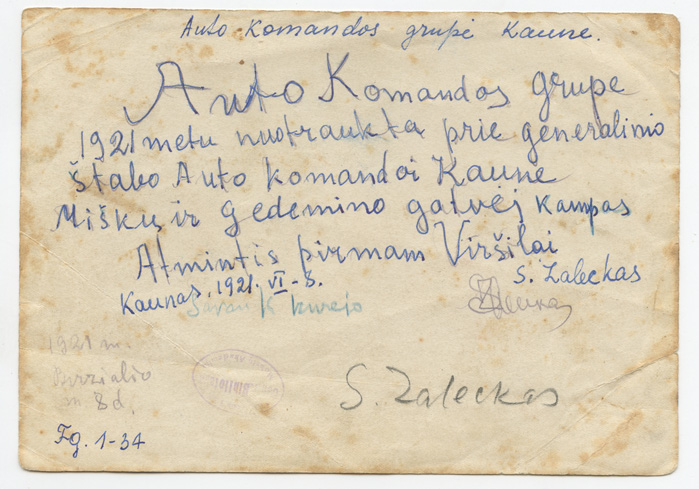 Auto komandos grupė Kaune.
Auto Komandos grupe
1921 metu nuotraukta prie generalinio
štabo Auto komandoi Kaune
Miškų ir Gedemino gatvėj kampas
Atmintis pirmam Viršilai
S. Zaleckas
Kaunas, 1921. VI - 8.
kurejo
1921 m.
Birzialio
m 8 d.
S. Zaleckas
Fg. 1-34